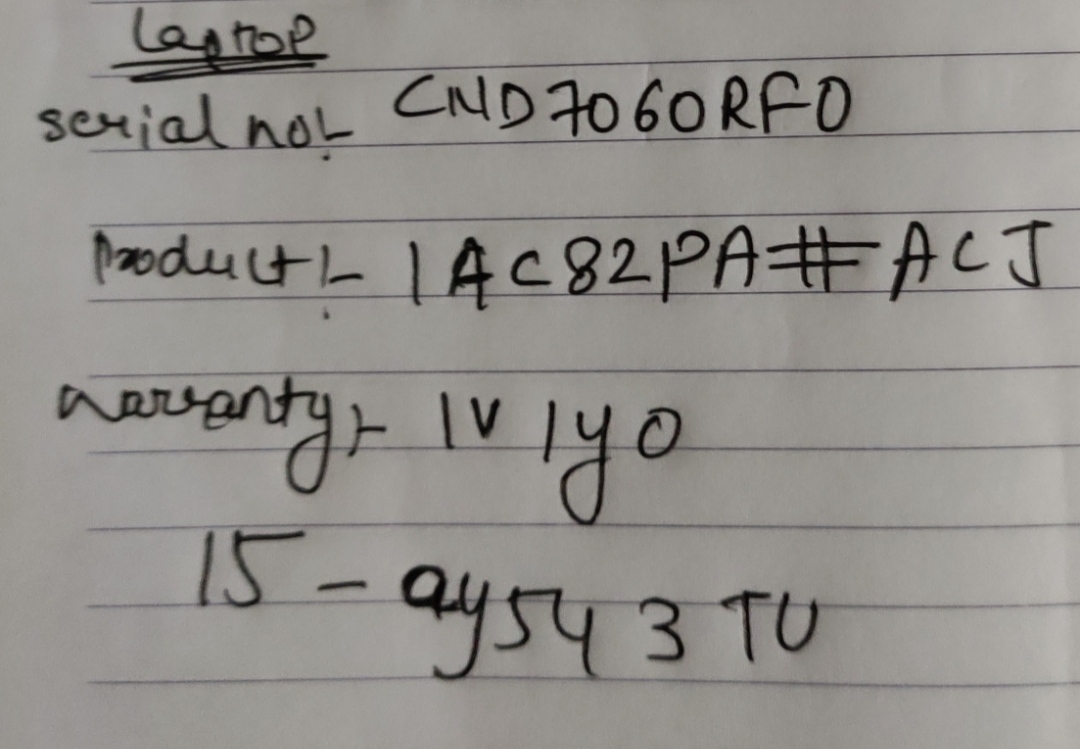 Laptop
serial no:- CND7060RF0
Product:- 1AC82PA#ACJ
warranty:- 1V 1y0
15-ay543TU